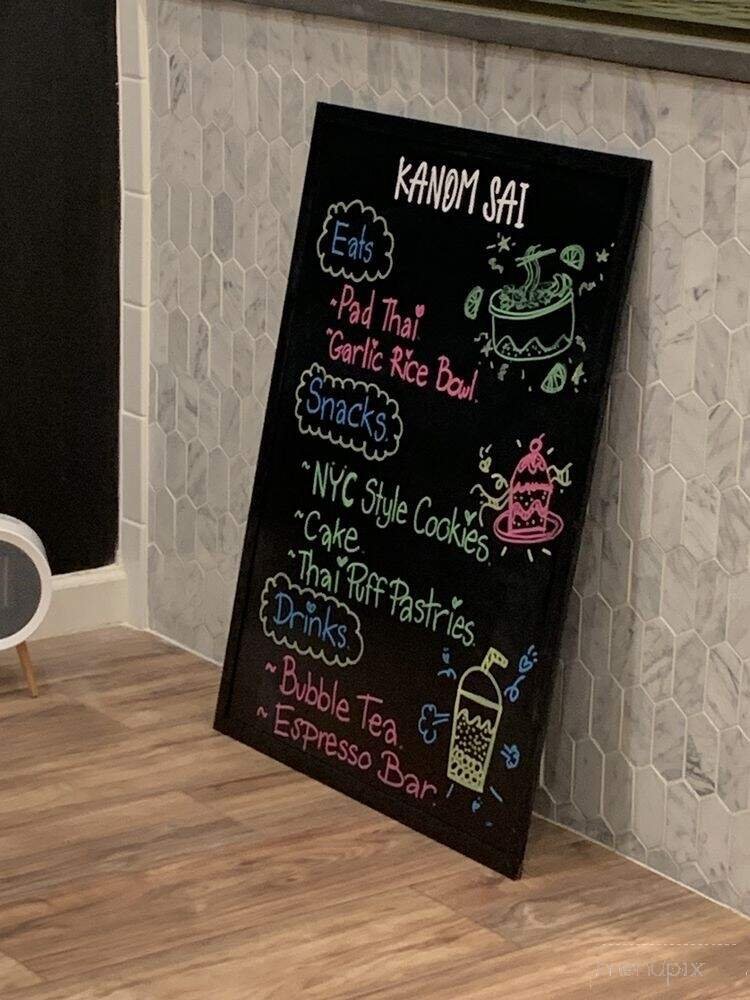 KANOM SAI
Eats
~Pad Thai
~Garlic Rice Bowl
Snacks
~NYC Style Cookies
~Cake
~Thai Puff Pastries
Drinks
~Bubble Tea
~Espresso Bar
menupix